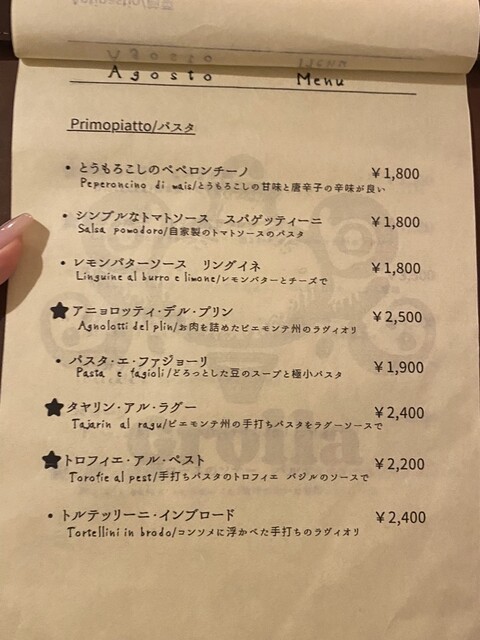 Agosto Menu
Primopiatto/パスタ
• とうもろこしのペペロンチーノ ¥1,800
Peperoncino di mais/とうもろこしの甘味と唐辛子の辛味が良い
• シンプルなトマトソース スパゲッティーニ ¥1,800
Salsa pomodoro/自家製のトマトソースのパスタ
• レモンバターソース リングイネ ¥1,800
Linguine al burro e limone/レモンバターとチーズで
★アニョロッティ・デル・プリン ¥2,500
Agnolotti del plin/お肉を詰めたピエモンテ州のラヴィオリ
• パスタ・エ・ファジョーリ ¥1,900
Pasta e fagioli/どろっとした豆のスープと極小パスタ
★タヤリン・アル・ラグー ¥2,400
Tajarin al ragu/ピエモンテ州の手打ちパスタをラグーソースで
★トロフィエ・アル・ペスト ¥2,200
Torofie al pest/手打ちパスタのトロフィエ バジルのソースで
• トルテッリーニ・インブロード ¥2,400
Tortellini in brodo/コンソメに浮かべた手打ちのラヴィオリ